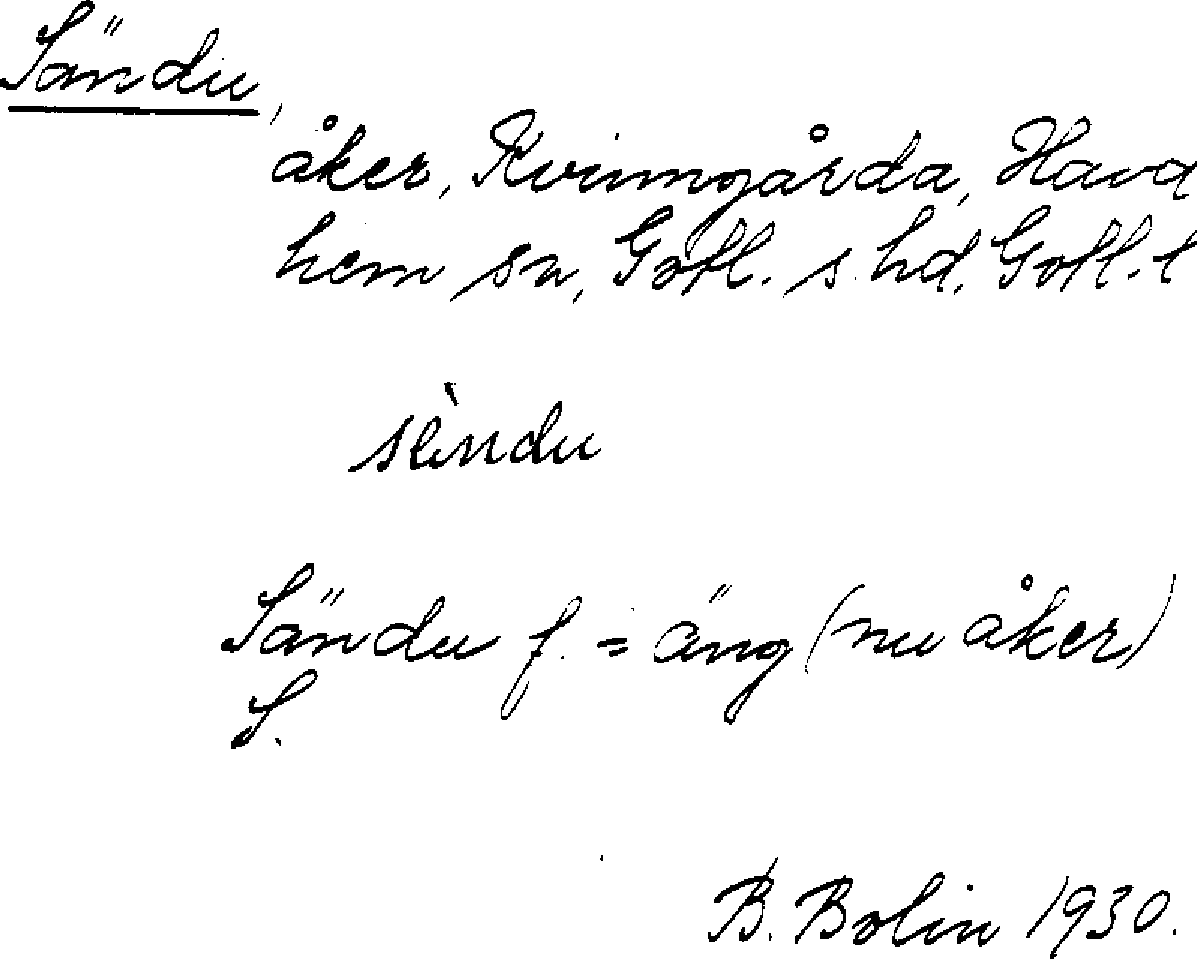 Sändu,
åker, Kvinngårda, Havd
hem sn, Gotl. s. hd, Gotl. l
sèndu
Sändu f. = äng (nu åker)
S.
B. Bolin 1930.